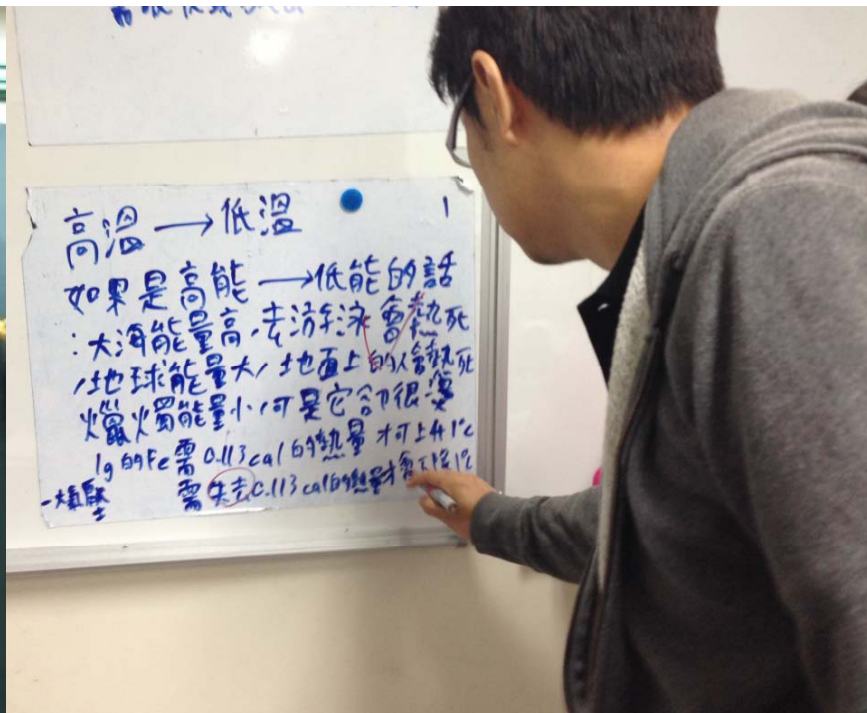 高溫 → 低溫
1
如果是高能 → 低能的話
:大海能量高,去游泳會熱死
,地球能量大,地面上的人會熱死
蠟燭能量小,可是它卻很燙
1g的Fe需0.113cal的熱量才可上升1℃
需失去0.113cal的熱量才會下降1℃